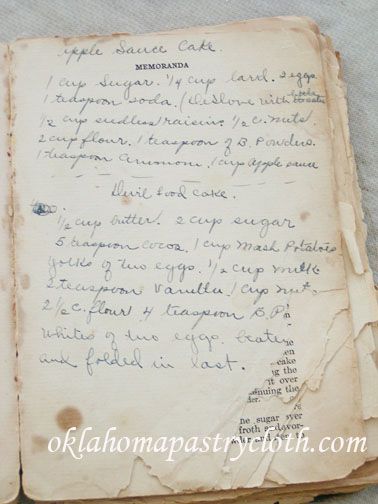 apple Sauce Cake.
MEMORANDA
1 cup Sugar. 1/4 cup lard. 2 eggs
1 teaspoon soda. (Dislove with
1/2 cup seedless raisin. 1/2 c. nuts
2 cup flour. 1 teaspoon of B. Powders.
1 teaspoon Cinnomom. 1 cup apple sauce
Devil food cake.
1/2 cup butter. 2 cup sugar
5 teaspoon cocoa. 1 cup Mash Potatoes
yolks of two eggs. 1/2 cup milk
2 teaspoon Vanilla. 1 cup nut.
2 1/2 c. flour 4 teaspoon B.P.
whites of two eggs. beaten
and folded in last.
en
cake
ing the
it over
enuing the
der.
ne sugar over
froth and
oklahomapastrycloth.com